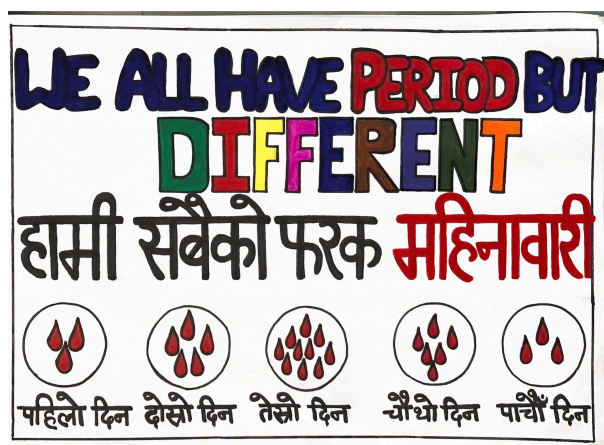 WE ALL HAVE PERIOD BUT
DIFFERENT
हामी सबैको फरक महिनावारी
पहिलो दिन दोस्रो दिन तेस्रो दिन चौथो दिन पाचौँ दिन